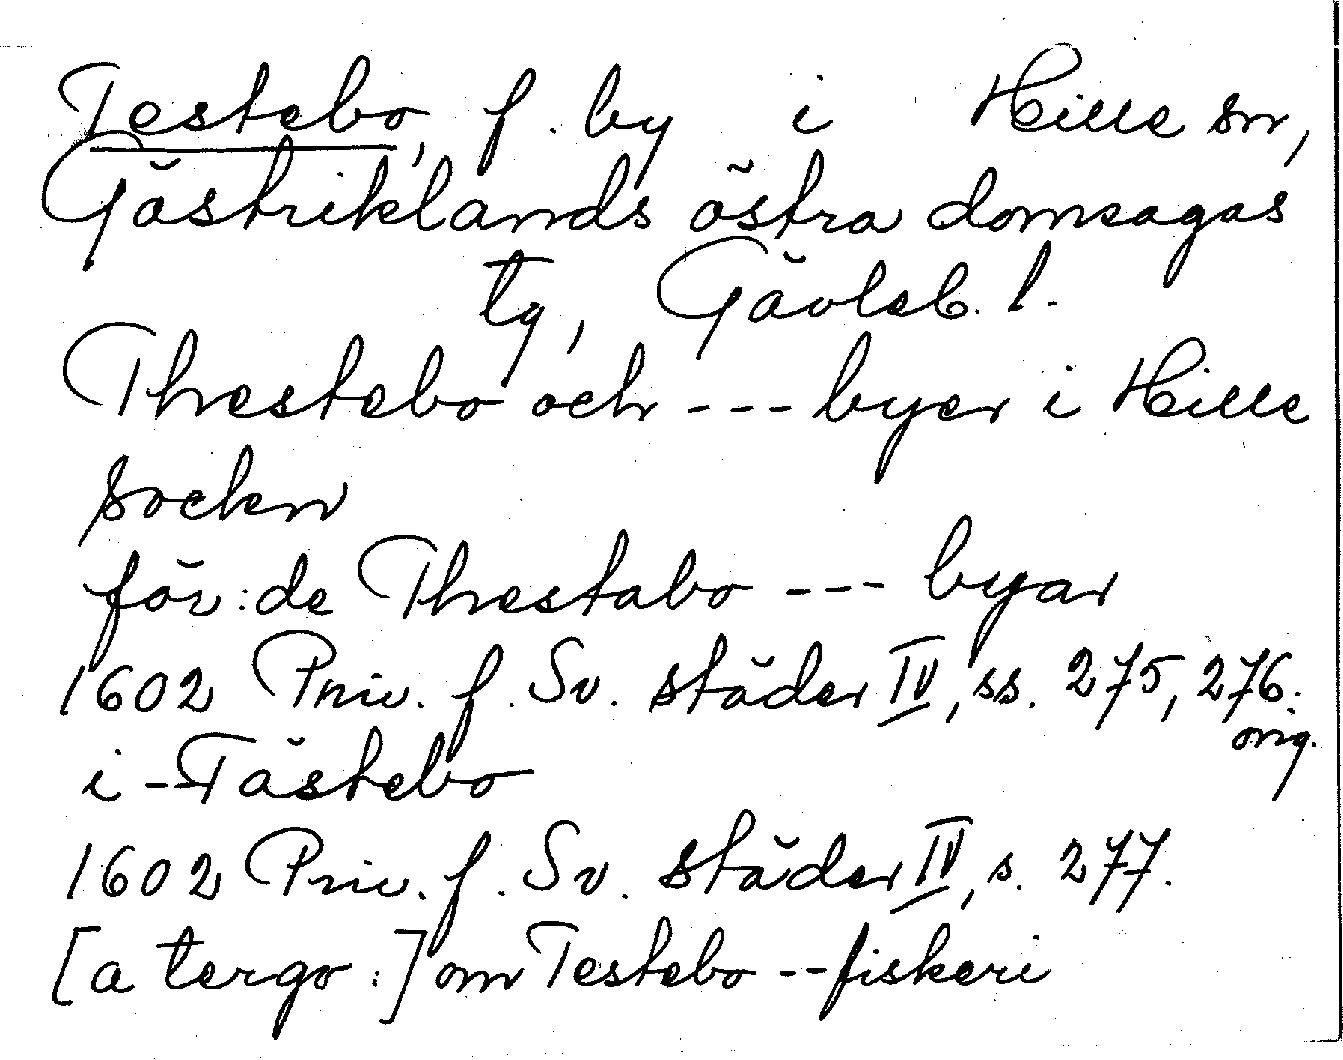 Testebo, f. by i Hille sn,
Gästriklands östra domsagas
tg, Gävleb. l.
Threstebo och --- byer i Hille
socken
för: de Threstabo --- byar
1602 Priv. f. Sv. städer IV, ss. 275, 276.
orig.
i -- Tästebo
1602 Priv. f. Sv. städer IV, s. 277.
[a tergo:] om Testebo -- fiskeri